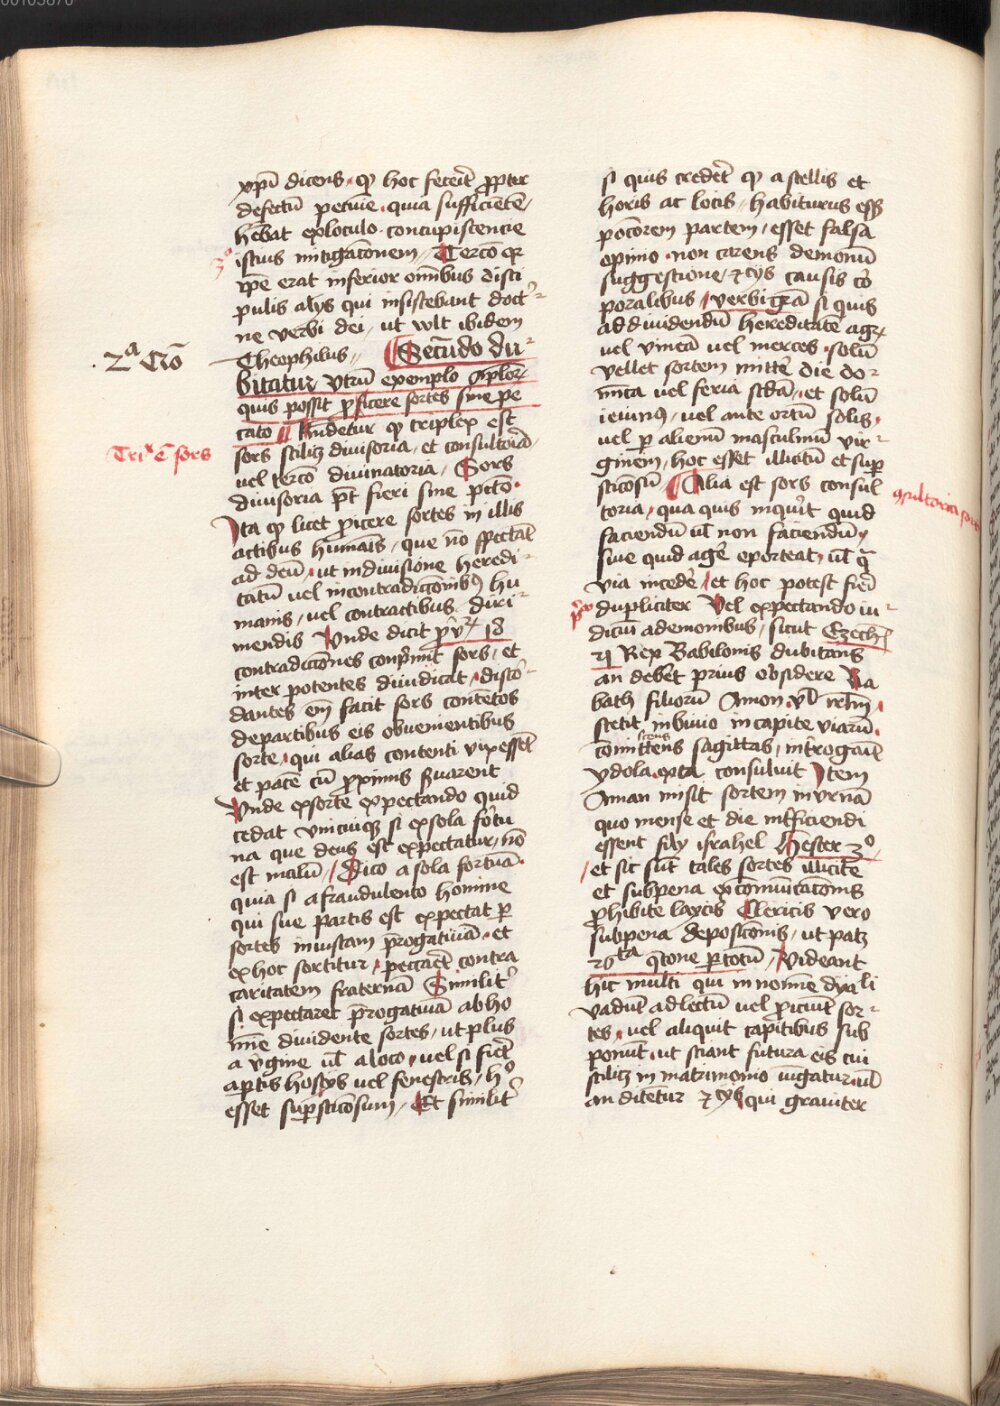 xpi dicens · qꝫ hoc fecerit ꝓpter
defectū pecunie · quia sufficiētē
hēbat eploculo · concupiscencie
istius mitigacōnem // Tercō qꝛ
ip̄e erat inferior om̄ibus disci
pulis alijs qui insistebant doct̾
ne verbi dei / ut wlt ibidem
Theophilus // Secūdo du
bitatur vtrū exemplo aplōꝝ
quis possit ꝓicere sortes sine pe
cato // Rn̄detur qꝫ triplex est
sors scilicꝫ diuisoria / et consultoria
vel tercō diuinatoria / Sors
diuisoria pōt fieri sine pctō ·
Ita qꝫ licet ꝓicere sortes in illis
actibus humāis / que nō spectāt
ad deū / ut in diuisione heredi
tatū uel in contradiccōnibꝰ hu
manis / uel contractibus diri
mendis Vnde dicit puͥꝝ 18
contradiccōnes conp̄mit sors / et
inter potentes diiudicat / discor
dantes em̄ facit sors contētos
de partibus eis obuenientibus
sorte / qui alias contenti vix essēt
et pacē cū ꝓximis ẜuarent
Vnde ex sorte expectando quid
cedat vnicuiqꝫ si ex sola fortu
na que deus est expectatur / nō
est malū / Dico a sola fortūa ·
quia si a fraudulento homine
qui sue partis est expectat ꝑ
sortes iniustam p̄rogatiuā · et
ex hoc sortitur / peccaret contra
caritatem fraternā Similit̾
si expectaret p̄rogatiuā ab ho
mine diuidente sortes / ut plus
a v̾gine ul̄ a loco / uel si fieret
aꝑtis hostijs uel fenestris / hͦ
esset suꝑsticōsum / Et similit̾
si quis crederet qꝫ a stellis et
horis ac locis / habiturus eēt
pocōrem partem / esset falsa
opinio · non carens demonū
suggestione / ⁊ eys causis cor
poralibus / verbi grā si quis
ad diuidendū hereditatē agꝝ
uel vineā uel merces / solū
vellet sortem mitt̾e die do
minica uel feria sc̄da / et solū
ieiunꝰ / uel ante ortū solis /
uel ꝑ alienū masculinū vir
ginem / hoc esset illicitū et suꝑ
sticōsū // Alia est sors consul
toria / qua quis inquirit quid
faciendū ul̄ non faciendū /
siue quid age̾ oporteat / ul̄ q̄
via incede̾ / et hoc potest fieri
dupliciter Vel expectando iu
diciū a demonibus / sicut Ezech
21 Rex Babilonis dubitans
an debet prius obsidere Ra
bath filiorū Amon · vl̄ irlm̄ /
stetit in biuio in capite viarū ·
comittens sagittas / int̾rogauit
ydola exta consuluit Item
Aman misit sortem in vrnā
quo mense et die int̾ficiendi
essent filij israhel Hester 3ͦ
et sic sūt tales sortes illicite
et sub pena excom̄uicacōnis
ꝓhibite laycis Clericis vero
sub pena deposicōnis / ut patꝫ
26ᵗᵃ q̄stone ꝑ totū / Videant
hic multi qui in nomine dyaꝉi
vadūt ad lectū uel ꝓiciūt sor
tes / uel aliquit capitibus sub
ponūt / ut sciant futura eis cui
scilicꝫ in matrimonio iūgatur / ul̄
an ditetur ⁊ eys qui grauiter
2ᵃ
Tripͯ ē sors
consultoria sors